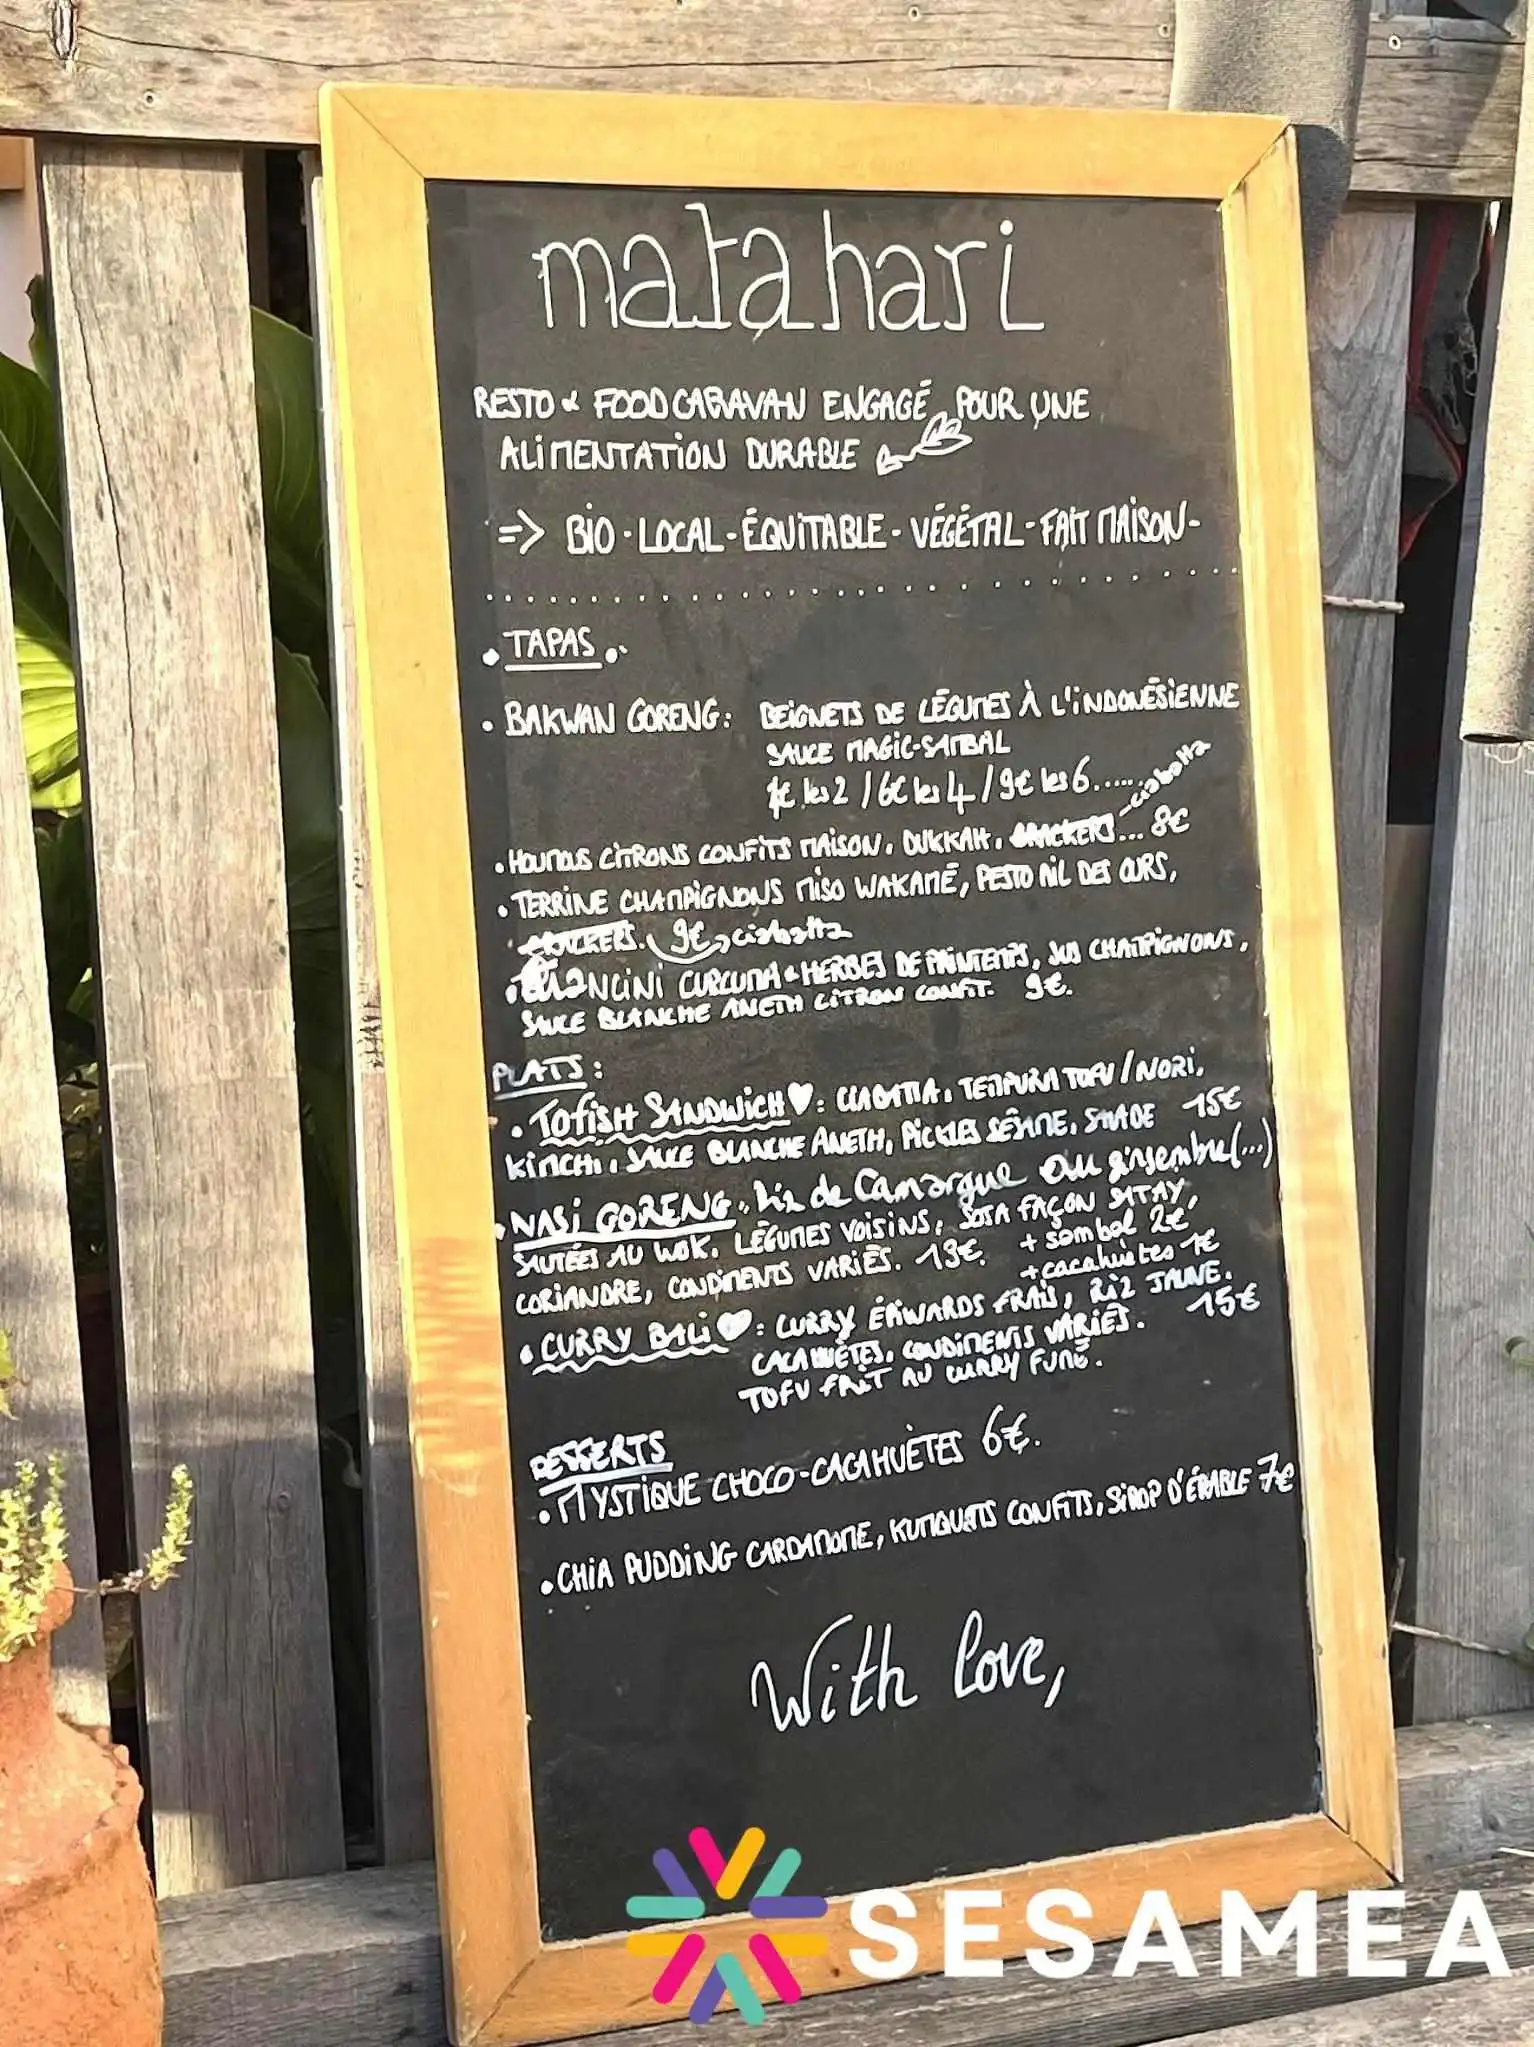 matahari
RESTO & FOODCARAVAN ENGAGÉ POUR UNE
ALIMENTATION DURABLE
=> BIO - LOCAL - ÉQUITABLE - VÉGÉTAL - FAIT MAISON -
• TAPAS •
• BAKWAN GORENG: BEIGNETS DE LÉGUMES À L'INDONÉSIENNE
SAUCE MAGIC-SAMBAL
les 2 / 6€ les 4 / 9€ les 6.....
ciabatta
• HOUMOUS CITRONS CONFITS MAISON, DUKKAH, CRACKERS... 8€
• TERRINE CHAMPIGNONS MISO WAKAMÉ, PESTO AIL DES OURS,
CRACKERS. 9€ ciabatta
• ARANCINI CURCUMA & HERBES DE PRINTEMPS, JUS CHAMPIGNONS,
SAUCE BLANCHE ANETH CITRON CONFIT. 9€.
PLATS:
• TOFISH SANDWICH ♥: CIABATTA, TEMPURA TOFU/NORI,
KIMCHI, SAUCE BLANCHE ANETH, PICKLES SÉSAME, SALADE 15€
• NASI GORENG, Riz de Camargue au gingembre (...)
SAUTÉES AU WOK, LÉGUMES VOISINS, SOJA FAÇON SATAY,
CORIANDRE, CONDIMENTS VARIÉS. 13€. + sambal 2€
+ cacahuètes 1€
• CURRY BALI ♥: CURRY ÉPINARDS FRAIS, RIZ JAUNE,
CACAHUÈTES, CONDIMENTS VARIÉS. 15€
TOFU FRIT AU CURRY FUMÉ.
DESSERTS
• MYSTIQUE CHOCO-CACAHUÈTES 6€.
• CHIA PUDDING CARDAMOME, KUMQUATS CONFITS, SIROP D'ÉRABLE 7€
With love,
SESAMEA